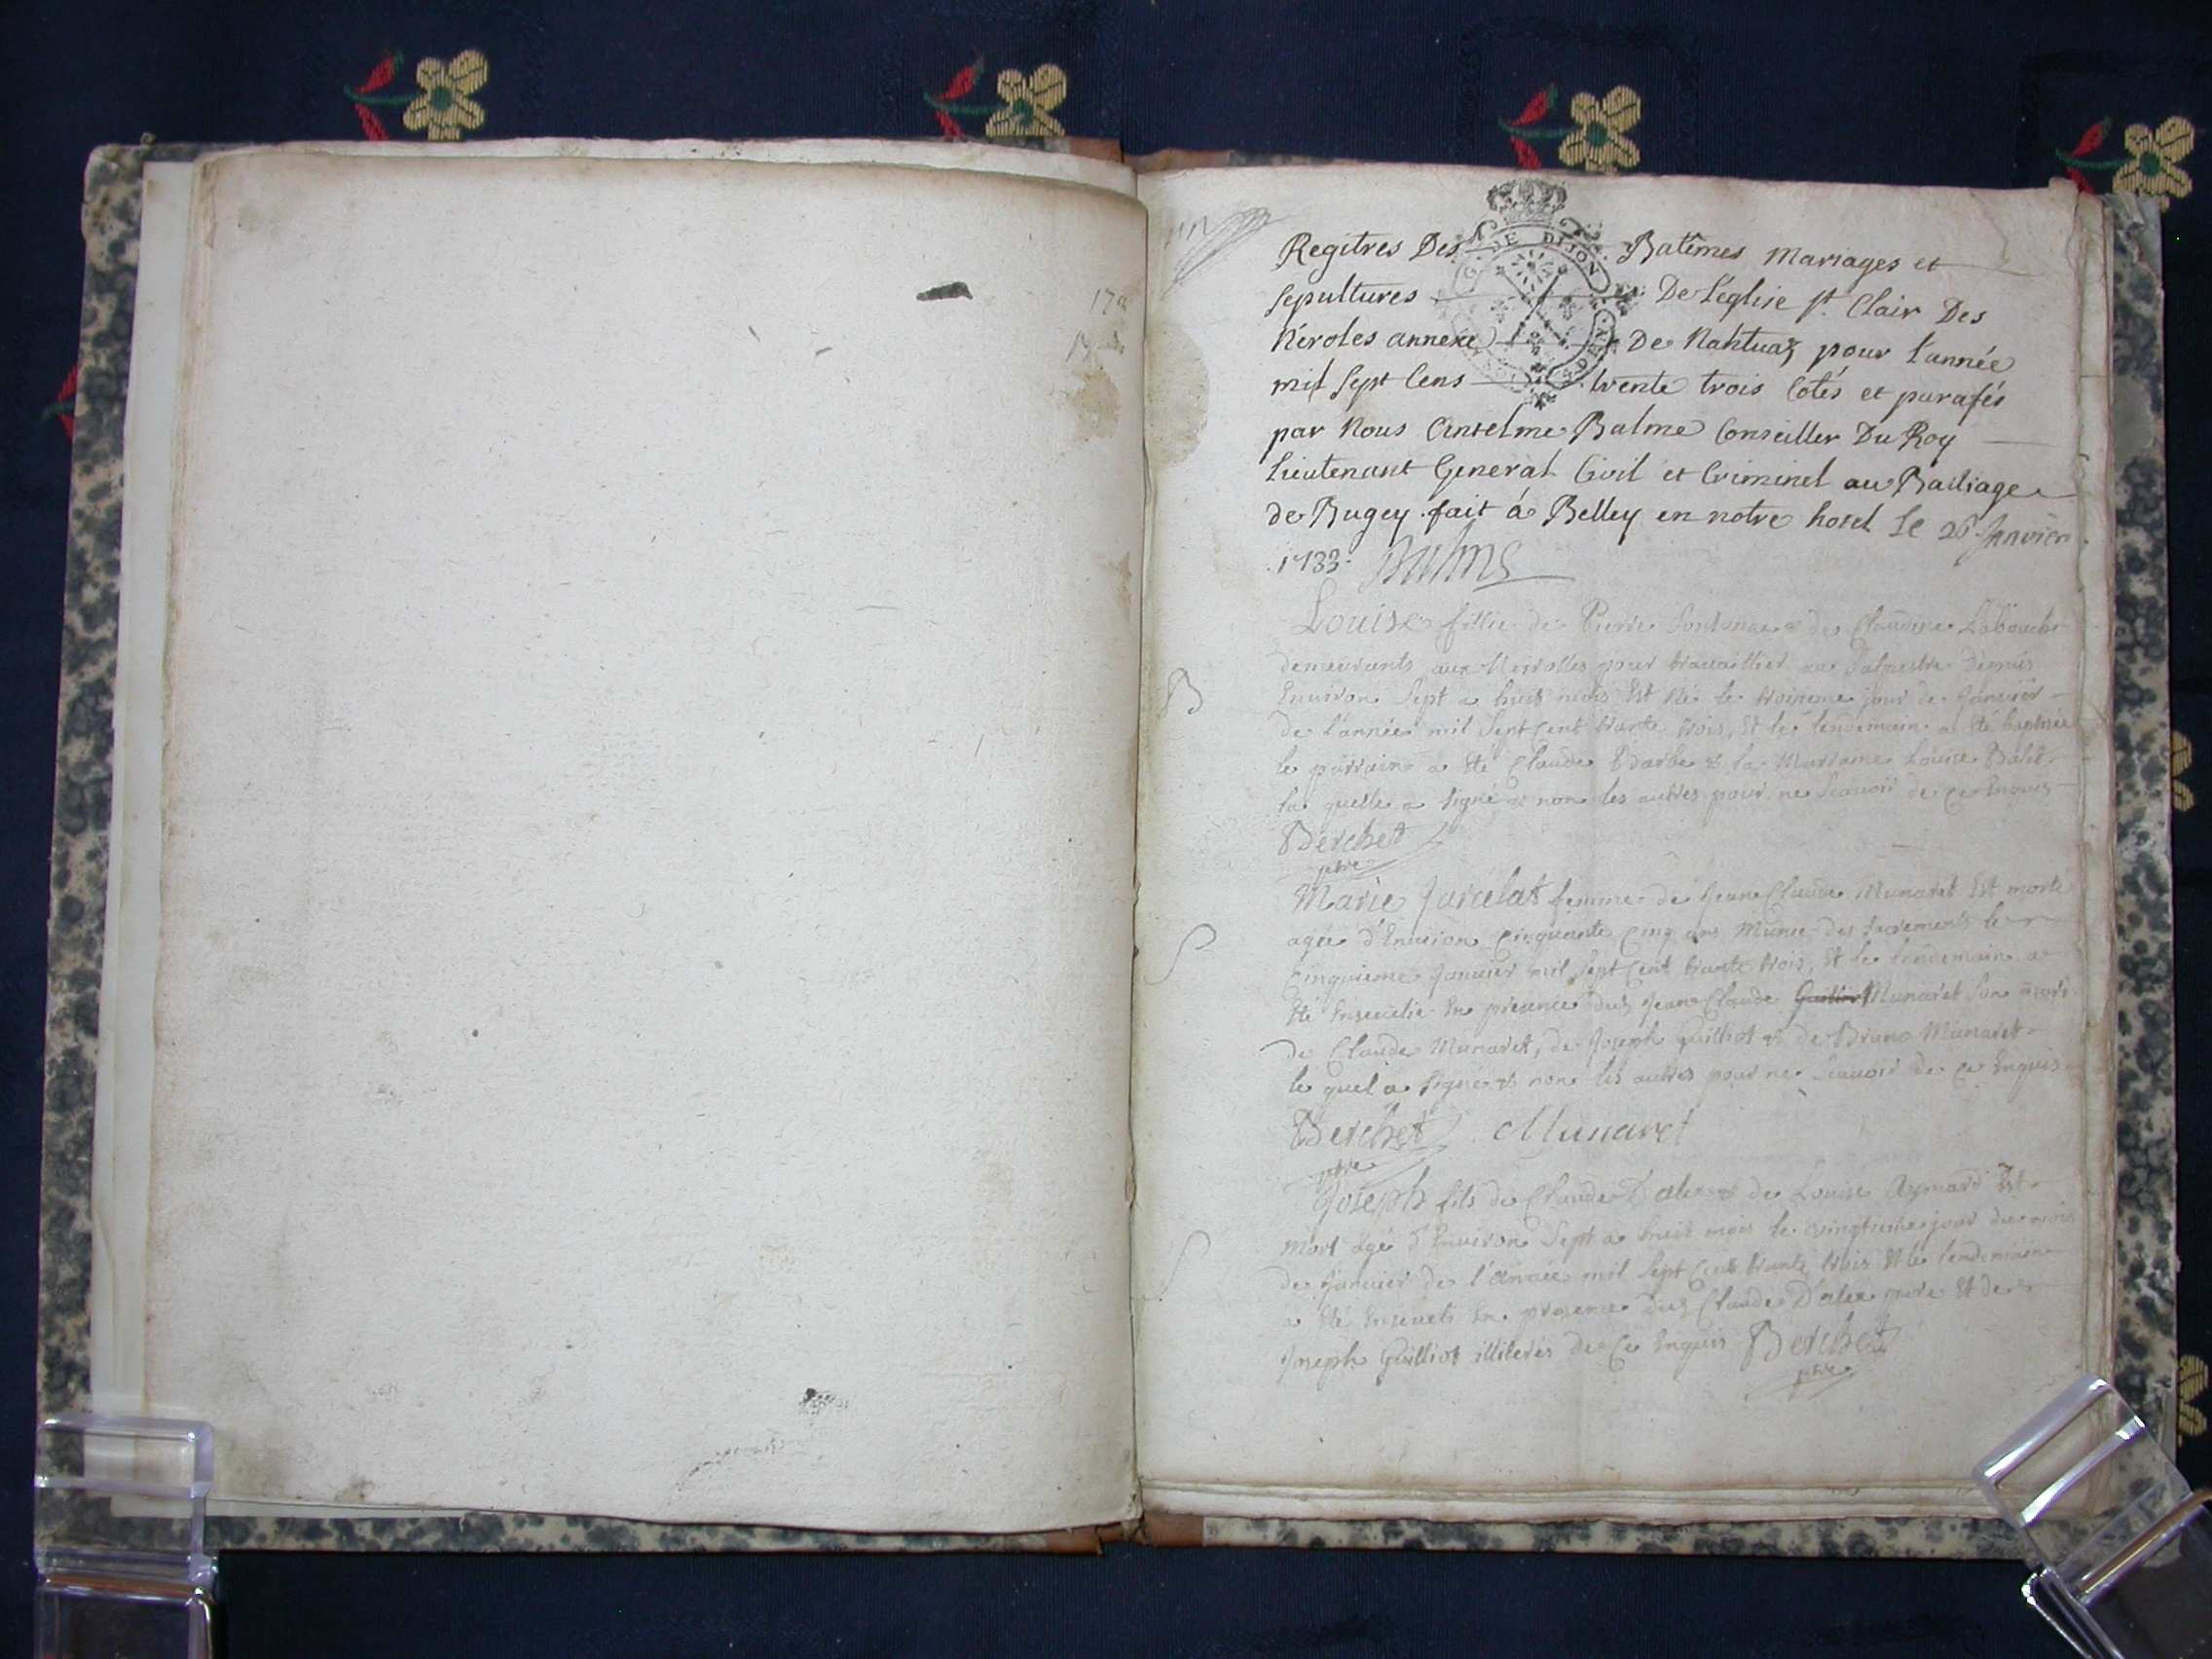 17
DE DIJON
Regitres Des Batêmes Mariages et
sepultures De L'eglise st. Clair Des
Néroles annexe De Nahtuaz pour l'année
mil sept Cens trente trois Cotés et parafés
par Nous Antelme Balme Conseiller Du Roy
Lieutenant General Civil et Criminel au Bailiage
de Bugey fait á Belley en notre hotel Le 26 Janvier
1733. Balme
B
Louise fillie de Pierre & de Claudine Labouche
demeurants aux Neirolles pour travaillier au depuis
Environ Sept a huit mois Est Née le troisieme jour de Janvier
de l'année mil Sept Cent trante trois, Et le lendemain a Eté baptisée
le parrain a Eté Claude Barbe & la Marraine Louise
la quelle a signé & non les autres pour ne Scavoir de ce Enquis
Berchet
ptre
S
Marie Jarcelat femme de Jean Claude Munaret Est morte
agée d'Environ Cinquante Cinq ans Munie des Sacrements le
Cinquieme Janvier mil Sept Cent trante trois, Et le lendemain a
Eté Ensevelie En presence dud Jean Claude Munaret Son mari
de Claude Munaret, de Joseph Guilliot & de Bruno Munaret
le quel a signé & non les autres pour ne Scavoir de ce Enquis
Berchet Munaret
ptre
S
Joseph fils de Claude D'alex & de Louise Aymard Est
Mort agé d'Environ Sept a huit mois le vingtieme jour du mois
de Janvier de l'année mil Sept Cent trante trois Et le lendemain
a Eté Enseveli En presence dud Claude D'alex pere Et de
Joseph Guilliot illiterés de Ce Enquis Berchet
ptre